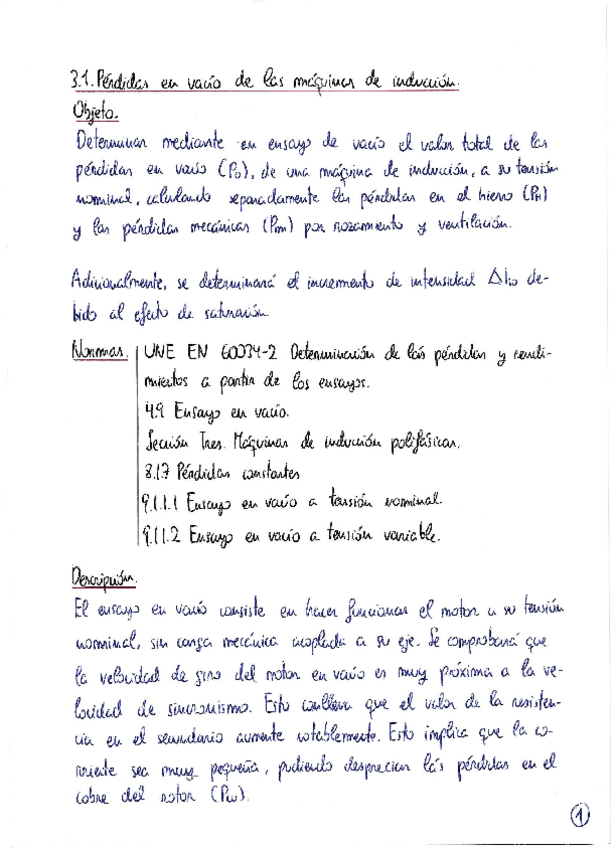 3.1. Pérdidas en vacío de las máquinas de inducción.
Objeto.
Determinar mediante un ensayo de vacío el valor total de las
pérdidas en vacío (P0), de una máquina de inducción, a su tensión
nominal, calculando separadamente las pérdidas en el hierro (PH)
y las pérdidas mecánicas (Pm) por rozamiento y ventilación.
Adicionalmente, se determinará el incremento de intensidad ΔI10 de-
bido al efecto de saturación.
Normas. UNE EN 60034-2 Determinación de las pérdidas y rendi-
mientos a partir de los ensayos.
4.9 Ensayo en vacío.
Sección Tres. Máquinas de inducción polifásicas.
8.1.7 Pérdidas constantes
9.1.1.1 Ensayo en vacío a tensión nominal.
9.1.1.2 Ensayo en vacío a tensión variable.
Descripción.
El ensayo en vacío consiste en hacer funcionar el motor a su tensión
nominal, sin carga mecánica acoplada a su eje. Se comprobará que
la velocidad de giro del motor en vacío es muy próxima a la ve-
locidad de sincronismo. Esto conlleva que el valor de la resisten-
cia en el secundario aumente notablemente. Esto implica que la co-
rriente sea muy pequeña, pudiendo despreciar las pérdidas en el
cobre del rotor (Pcu).
1